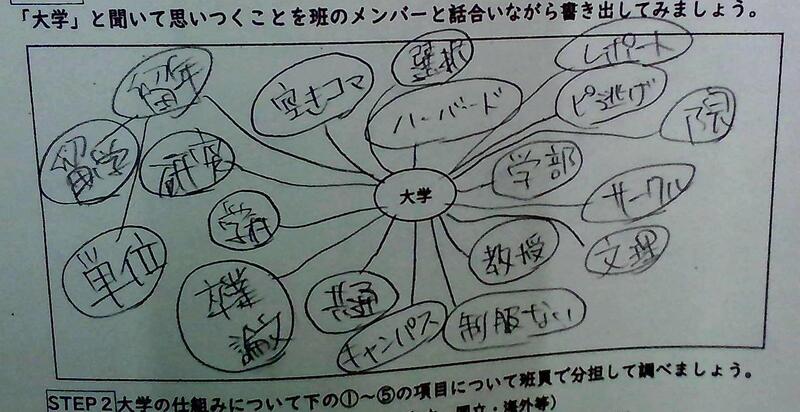 「大学」と聞いて思いつくことを班のメンバーと話合いながら書き出してみましょう。
留年
空きコマ
選択
レポート
ハーバード
ピ逃げ
院
留学
研究
学部
大学
サークル
学科
単位
教授
文理
卒業
論文
共通
キャンパス
制服ない
STEP2 大学の仕組みについて下の①～⑤の項目について班員で分担して調べましょう。
国立・海外等）